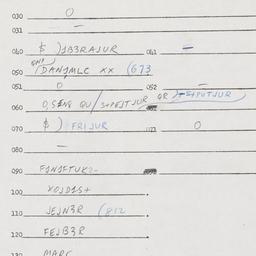 030 0
031 —
040 $ )JB3RAJUR 041 —
050 DANJMLC XX (673
051 0 052 —
060 O,S QU/S+PEJTJUR OR J+SIPUTJUR
070 $ ) FRIJUR 0
080 —
090 FJNJFTUK2-
100 XOJDJS+
110 JEJN3R (812
120 FEJB3R
130 MARC